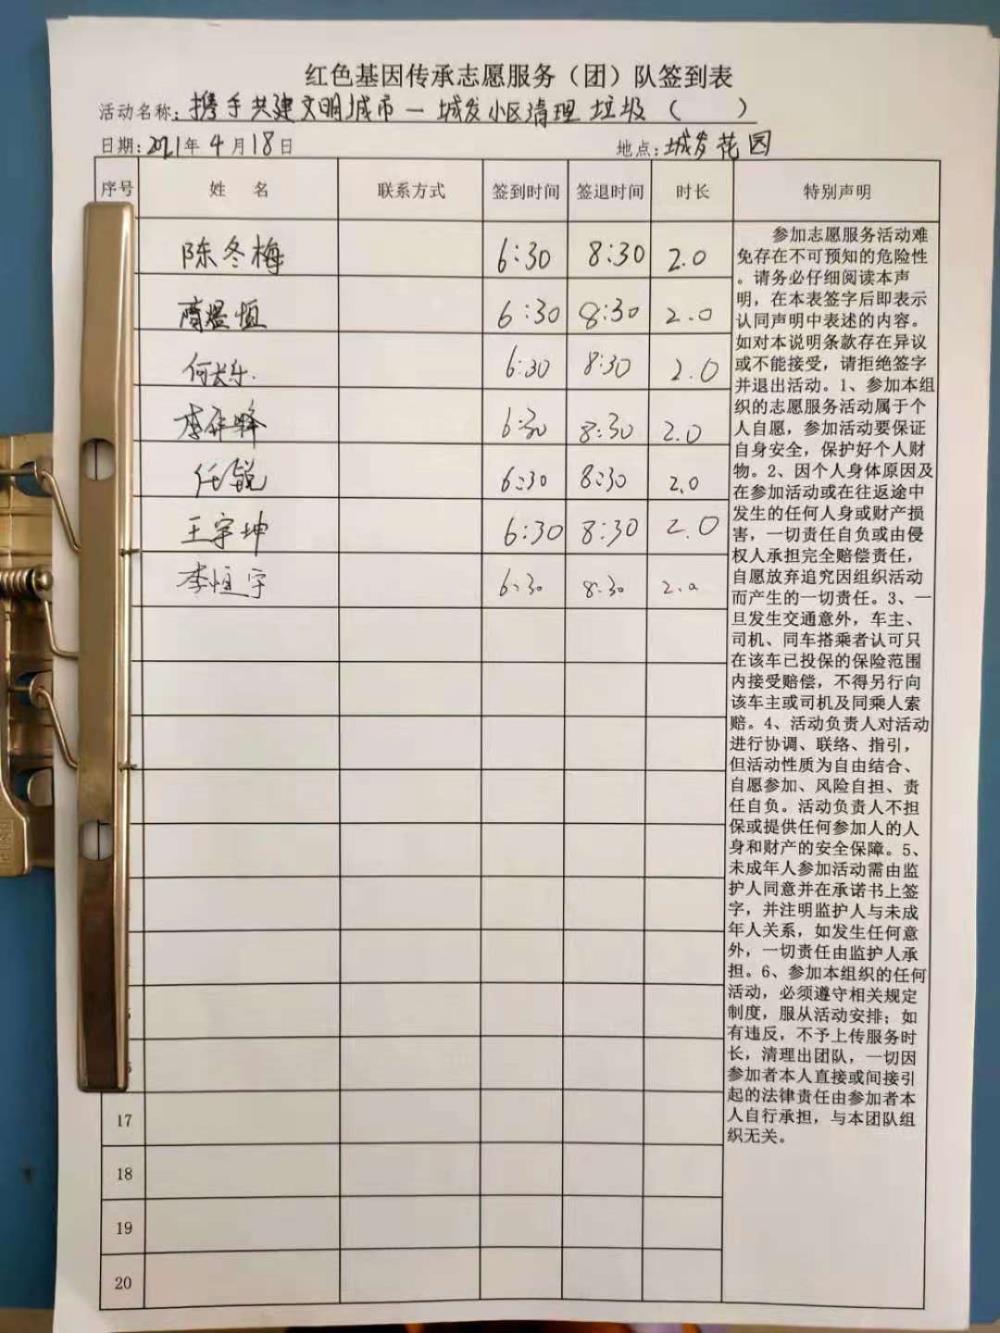 红色基因传承志愿服务（团）队签到表
活动名称：携手共建文明城市一城发小区清理垃圾（ ）
日期：2021年4月18日 地点：城发花园
序号 姓 名 联系方式 签到时间 签退时间 时长 特别声明
陈冬梅 6:30 8:30 2.0
6:30 8:30 2.0
6:30 8:30 2.0
6:30 8:30 2.0
任锐 6:30 8:30 2.0
王宇坤 6:30 8:30 2.0
李恒宇 6:30 8:30 2.0
17
18
19
20
参加志愿服务活动难
免存在不可预知的危险性
。请务必仔细阅读本声
明，在本表签字后即表示
认同声明中表述的内容。
如对本说明条款存在异议
或不能接受，请拒绝签字
并退出活动。1、参加本组
织的志愿服务活动属于个
人自愿，参加活动要保证
自身安全，保护好个人财
物。2、因个人身体原因及
在参加活动或在往返途中
发生的任何人身或财产损
害，一切责任自负或由侵
权人承担完全赔偿责任，
自愿放弃追究因组织活动
而产生的一切责任。3、一
旦发生交通意外，车主、
司机、同车搭乘者认可只
在该车已投保的保险范围
内接受赔偿，不得另行向
该车主或司机及同乘人索
赔。4、活动负责人对活动
进行协调、联络、指引，
但活动性质为自由结合、
自愿参加、风险自担、责
任自负。活动负责人不担
保或提供任何参加人的人
身和财产的安全保障。5、
未成年人参加活动需由监
护人同意并在承诺书上签
字，并注明监护人与未成
年人关系，如发生任何意
外，一切责任由监护人承
担。6、参加本组织的任何
活动，必须遵守相关规定
制度，服从活动安排；如
有违反，不予上传服务时
长，清理出团队，一切因
参加者本人直接或间接引
起的法律责任由参加者本
人自行承担，与本团队组
织无关。